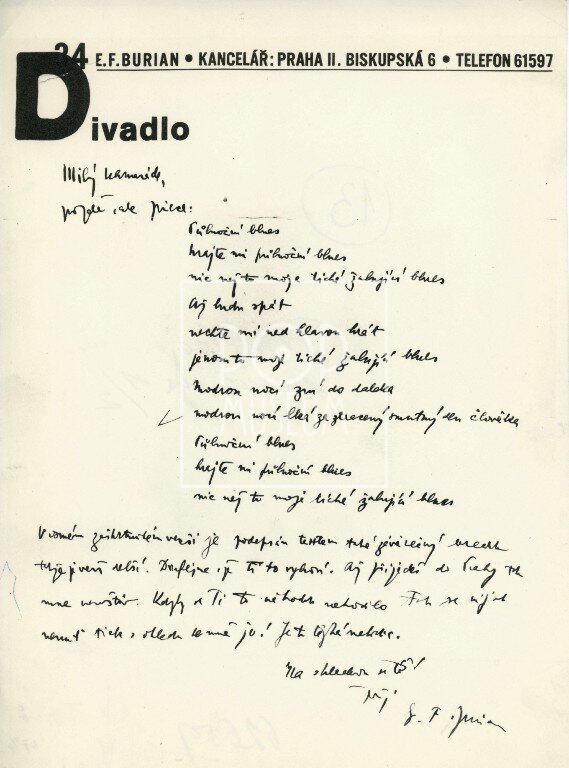 34 E.F.BURIAN • KANCELÁŘ: PRAHA II. BISKUPSKÁ 6 • TELEFON 61597
Divadlo
Milý kamaráde,
pozdě ale přece:
Půlnoční blues
hrajte mi půlnoční blues
nic než to moje tiché žalující blues
Až budu spát
nechte mi nad hlavou hrát
jenom to moje tiché žalující blues
Modrou nocí zní do daleka
modrou nocí lká za ztracený smutný den člověka
Půlnoční blues
hrajte mi půlnoční blues
nic než to moje tiché žalující blues
V verši je podepsán textem také
delší. Doufejme že Ti to vyhoví. Až přijedeš do Prahy tak
mne navštiv. Kdyby se Ti to náhodou nehodilo tak se nijak
s ohledu ke mně je! Je to těžká
Na shledanou a
Tvůj
E. F. Burian